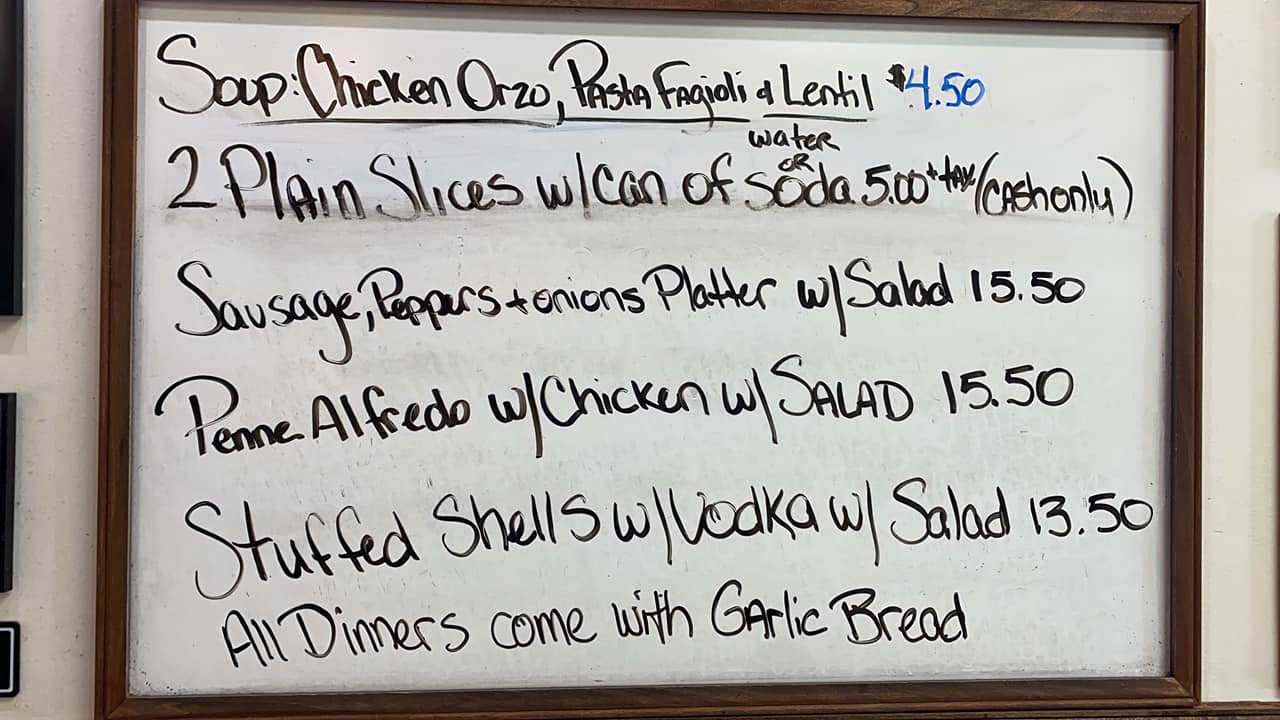 Soup: Chicken Orzo, Pasta Fagioli & Lentil $4.50
water
or
2 Plain Slices w/can of soda 5.00 + tax (cash only)
Sausage, Peppers + onions Platter w/Salad 15.50
Penne Alfredo w/Chicken w/SALAD 15.50
Stuffed Shells w/Vodka w/ Salad 13.50
All Dinners come with Garlic Bread